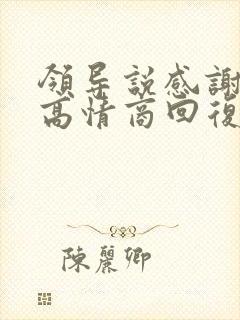 領导説感謝
高情商回復
陳麗卿